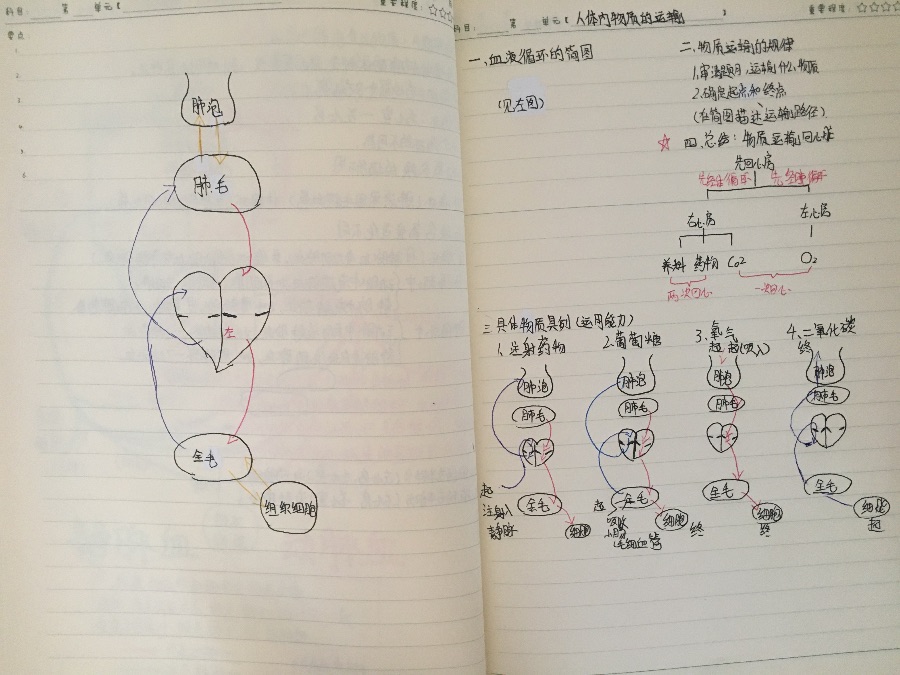 科目: 第 单元【 重要程度: ☆☆☆
要点
1.
2.
3.
4.
5.
肺泡
肺毛
左
全毛
组织细胞
科目: 第 单元【 人体内物质的运输 】 重要程度: ☆☆☆☆
一、血液循环的简图
(见左图)
二、物质运输的规律
1.审清题目,运输什么物质
2.确定起点和终点
(在简图描述运输路径)
☆ 四、总结:物质运输回心脏
先回心房
先经体循环 先经肺循环
右心房 左心房
养料 药物 CO2 O2
两次回心 一次回心
三、具体物质具例(运用能力)
1.注射药物
肺泡
肺毛
起
注射入
静脉
全毛
细胞
2.葡萄糖
肺泡
肺毛
起
全毛
小肠
毛细血管
细胞
终
3.氧气
起(吸入)
肺泡
肺毛
全毛
细胞
终
4.二氧化碳
终
肺泡
肺毛
全毛
细胞
起